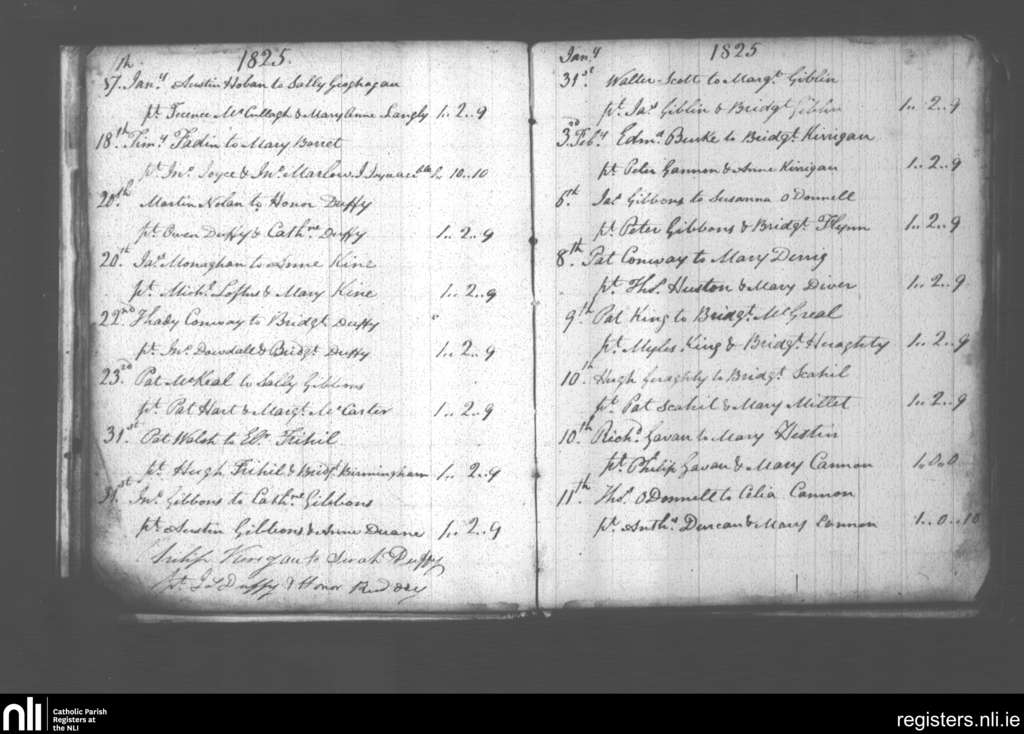 1825.
17th Jany Austin Hoban to Sally Geoghagan
pt. Terence McCullogh & Mary Anne Langly 1..2..9
18th Timy Fadin to Mary Barret
pt. Jno. Joyce & Jno. Marlow 10..10
20th Martin Nolan to Honor Duffy
pt. Owen Duffy & Cathne Duffy 1..2..9
20th Jas. Monaghan to Anne Kine
pt. Michl. Loftus & Mary Kine 1..2..9
22nd Thady Conway to Bridgt. Duffy "
pt. Jno. Dowdall & Bridgt. Duffy 1..2..9
23rd Pat McKeal to Sally Gibbons
pt. Pat Hart & Margt. McCarter 1..2..9
31st Pat Walsh to Elr. Frihil
pt. Hugh Frihil & Bridgt. Birmingham 1..2..9
31st Jno. Gibbons to Cathne Gibbons
pt. Austin Gibbons & Anne Duane 1..2..9
Philip Kirrgan to Sarah Duffy
pt. Js Duffy & Honor Ruddy
Jany 1825
31st Walter Scott to Margt. Giblin
pt. Jas. Giblin & Bridgt. Giblin 1..2..9
3rd Feby. Edmd. Burke to Bridgt. Kirrigan
pt. Peter Gannon & Anne Kirrigan 1..2..9
6th. Jas. Gibbons to Susanna O'Donnell
pt. Peter Gibbons & Bridgt. Flynn 1..2..9
8th. Pat Conway to Mary Derrig
pt. Thos. Huston & Mary Diver 1..2..9
9th. Pat King to Bridgt. McGreal
pt. Myles King & Bridgt. Heraghty 1..2..9
10th Hugh Geraghty to Bridgt. Scahil
pt. Pat Scahil & Mary Millet 1..2..9
10th Richd. Gavan to Mary Hestin
pt. Philip Gavan & Mary Cannon 1..0..0
11th. Thos. O'Donnell to Celia Cannon
pt. Anthy. Duncan & Mary Cannon 1..0..10
nli
Catholic Parish
Registers at
the NLI
registers.nli.ie